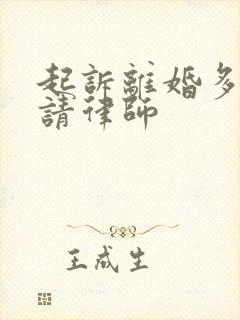 起訴離婚多
請律師
王成生